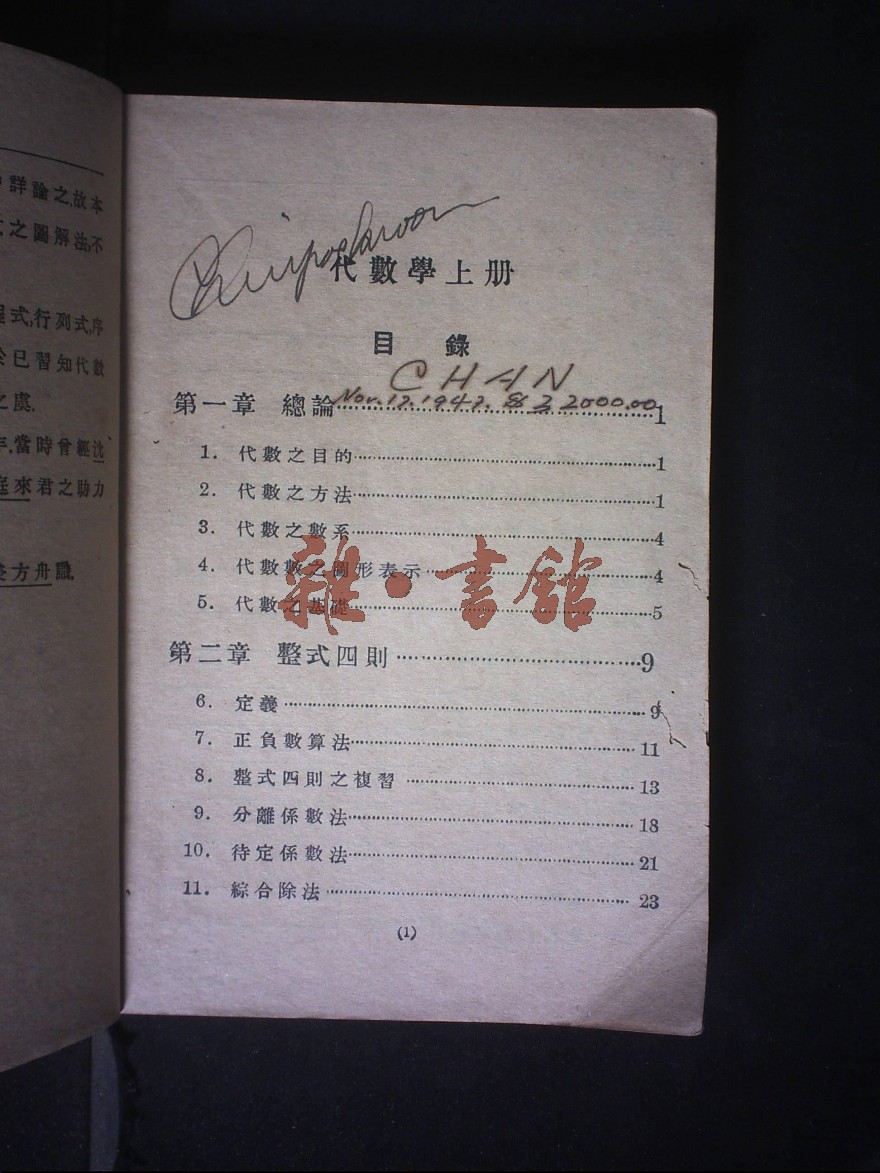 詳論之,故本
之圖解法,不
程式,行列式,序
於已習知代數
之虞.
年,當時曾經沈
庭來君之助力
方舟識.
代數學上册
目錄
CHAN
Nov. 12. 1947. 2000.00
第一章 總論……1
1. 代數之目的……1
2. 代數之方法……1
3. 代數之數系……4
4. 代數數之圖形表示……4
雜·書館
5. 代數之基礎……5
第二章 整式四則……9
6. 定義……9
7. 正負數算法……11
8. 整式四則之複習……13
9. 分離係數法……18
10. 待定係數法……21
11. 綜合除法……23
(1)